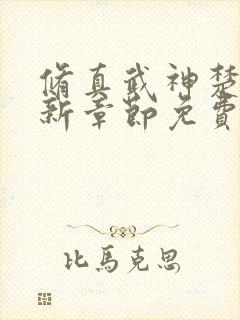 脩真武神楚
新章節免費
比馬克思